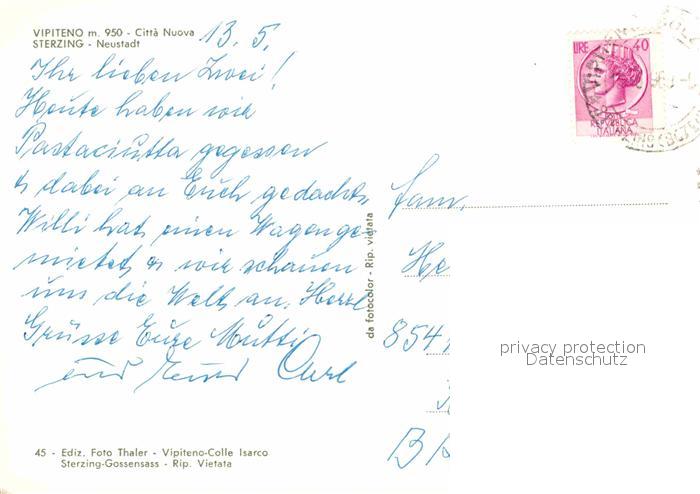 VIPITENO m. 950 - Città Nuova
STERZING - Neustadt
13. 5.
Ihr lieben Zwei!
Heute haben wir
Pastaciutta gegessen
& dabei an Euch gedacht,
Willi hat einen Wagen ge
mietet & wir schauen
uns die Welt an. Herzl
Grüsse Eure Mutti
und
45 - Ediz. Foto Thaler - Vipiteno-Colle Isarco
Sterzing-Gossensass - Rip. Vietata
da fotocolor - Rip. vietata
LIRE 40
REPUBBLICA
ITALIANA
Fam.
He
854
privacy protection
Datenschutz